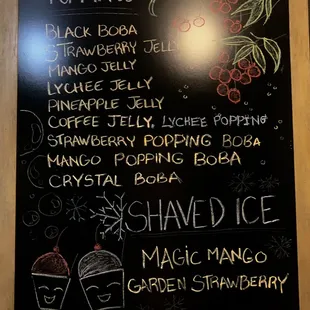 BLACK BOBA
STRAWBERRY JELLY
MANGO JELLY
LYCHEE JELLY
PINEAPPLE JELLY
COFFEE JELLY, LYCHEE POPPING
STRAWBERRY POPPING BOBA
MANGO POPPING BOBA
CRYSTAL BOBA
SHAVED ICE
MAGIC MANGO
GARDEN STRAWBERRY